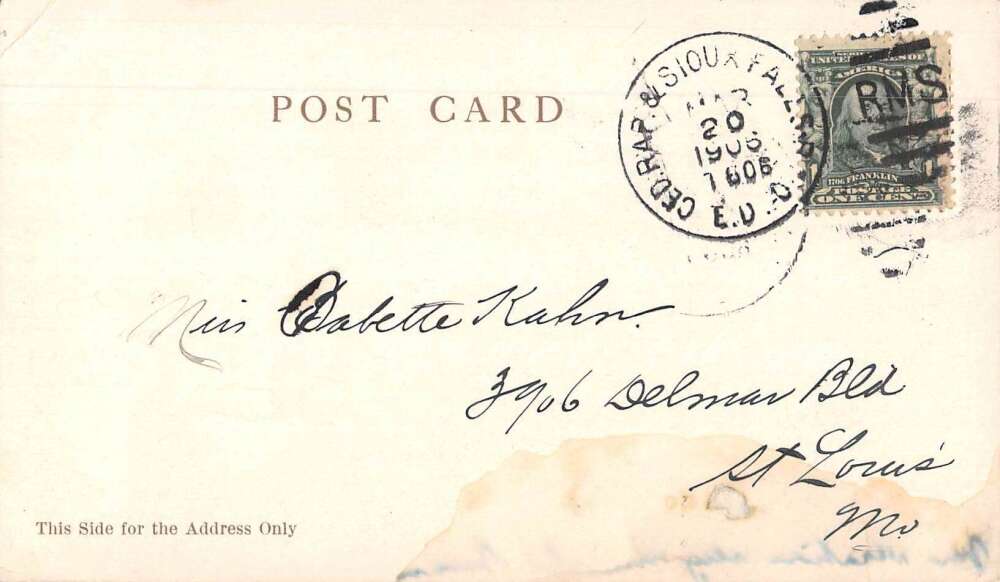 POST CARD
CED. RAP. & SIOUX FALLS R.P.O.
MAR
20
1906
E.D.
RMS
SERIES 1902
UNITED STATES OF
AMERICA
1706 FRANKLIN
POSTAGE
ONE CENT
Miss Babette Kahn.
3906 Delmar Bld
St Louis
Mo
This Side for the Address Only